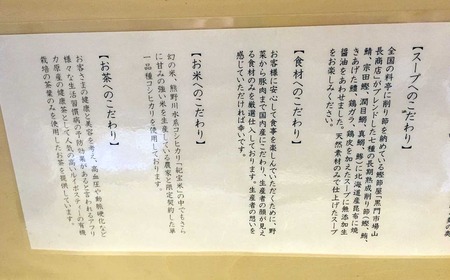 【スープへのこだわり】
全国の料亭に削り節を納めている鰹節屋「黒門市場山
長商店」がブレンドした七種の長期熟成削り節（鰹、鮪、
鯖、宗田鰹、潤目鰯、真鯵、鯵）に北海道産昆布に焼
きあげた鱧、鶏ガラ、鶏皮を加えたスープに無添加生
醤油をあわせました。天然素材のみで仕上げたスープ
をお楽しみください。
【食材へのこだわり】
お客様に安心して食事を楽しんでいただくために、野
菜から豚肉まで国内産にこだわり、生産者の顔が見え
る食材のみを厳選仕入しております。生産者の想いを
感じていただければ幸いです。
【お米へのこだわり】
幻の米、熊野川水系コシヒカリ「紀宝米」の中でもさら
に甘みの強い米を生産している農家と限定契約した単
一品種コシヒカリを使用しております。
【お茶へのこだわり】
お客さまの健康と美容を考え、高血圧や動脈硬化など
様々な生活習慣病の予防効果があると言われるアフリ
カ原産の健康茶として人気の高いルイボスティーの有機
栽培の茶葉のみを使用したお茶を提供しています。